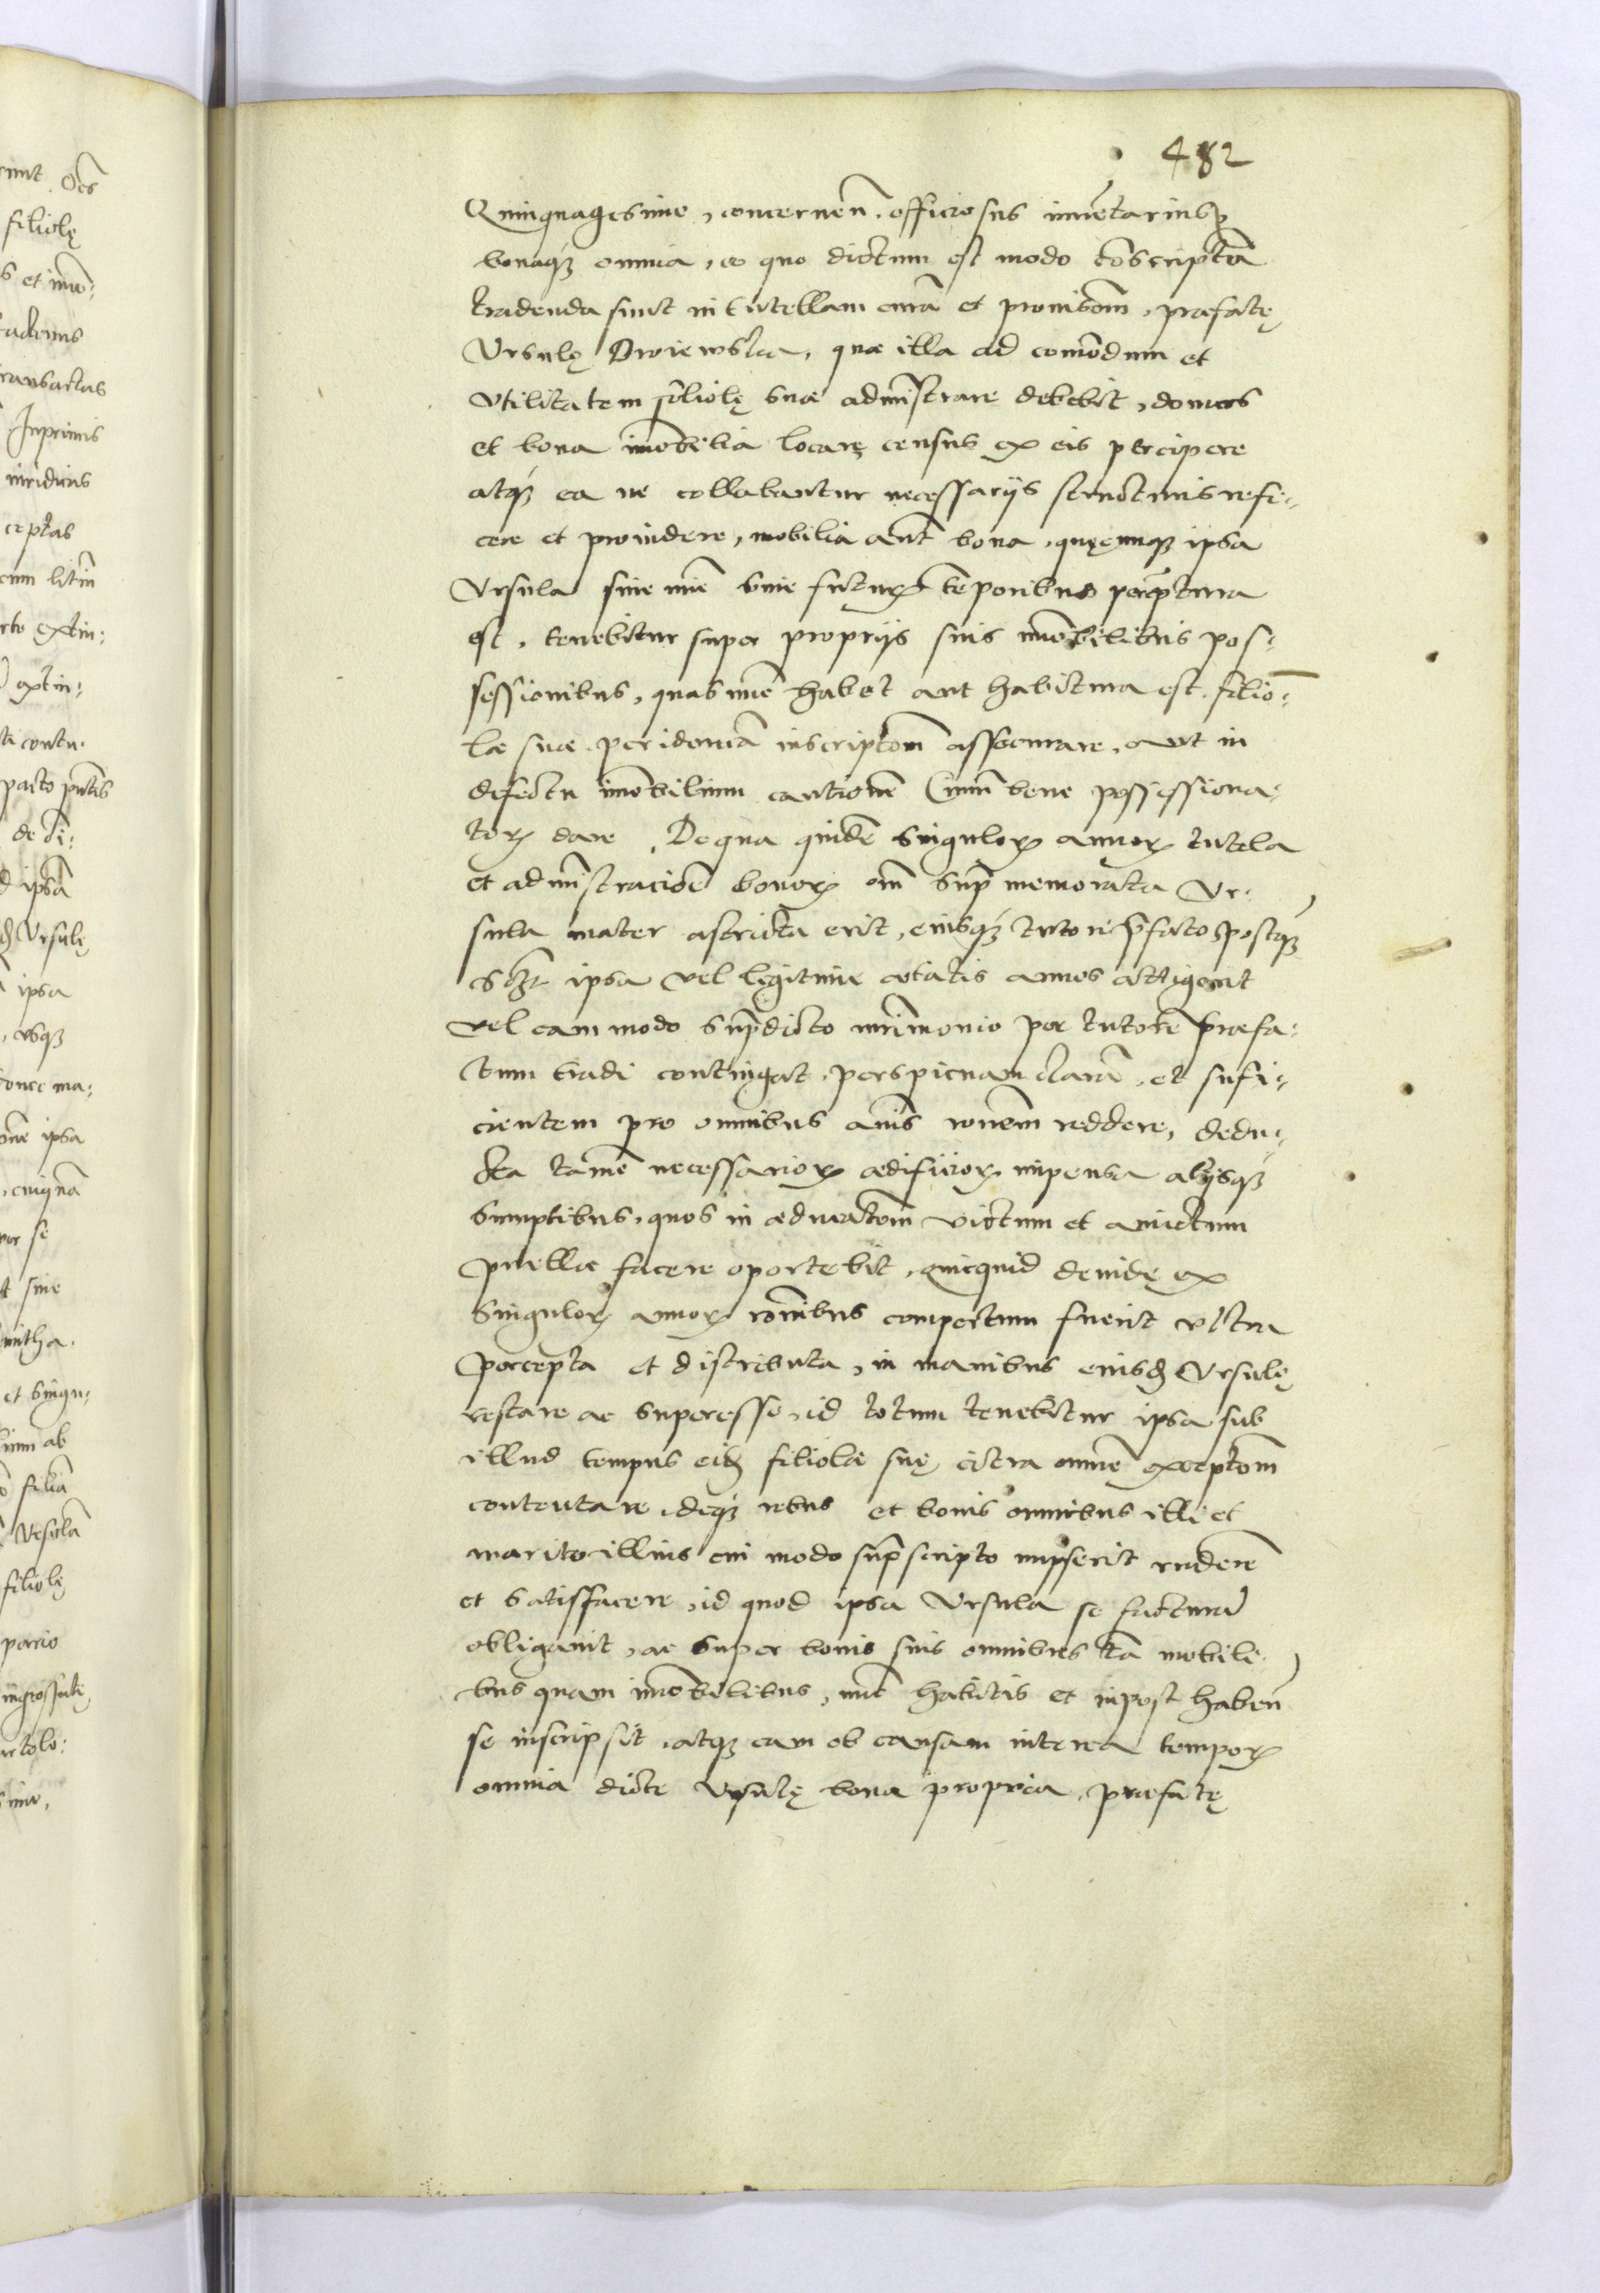 482
Quinquagesimo, concernen̄. officiosus inuētarius
bonaq3 omnia, eo quo dictum est modo cōscripta
tradenda sunt in tutellam curā et prouisiōm, præfatę
Vrsulę, quæ illa ad comōdum et
vtilitatem filiolę suæ admīstrare debebit, domos
et bona imōbilia locare census ex eis percipere
atq3 ea ne collabantur necessarijs structuris refi-
cere et prouidere, mobilia aūt bona, quęcunq3 ipsa
Vrsula siue nūc siue futur̄ tēporibus perceptura
est, tenebitur super proprijs suis imōbilibus pos-
sessionibus, quas nūc habet aut habitura est. filio-
læ suæ per idoneā inscriptōm assecurare, aut in
defectu imōbilium cautionē Ciuiū bene possessiona-
tor̄ dare. De qua quidē singulor̄ annor̄ tutela
et admīstracione bonor̄ om̄ supra memorata Vr-
sula mater astricta erit, eiusq3 tutori p̄fato postq3
ipsa vel legitimæ ætatis annos attigerit
vel eam modo sup̄dicto mr̄imonio per tutorē præfa-
tum tradi contingat, perspicuam clarā, et sufi-
cientem pro omnibus annis ronem reddere, dedu-
cta tamē necessarior̄ ædificior̄ impensa alijsq3
sumptibus, quos in educatōm victum et amictum
puellæ facere oportebit, quicquid deinde ex
singulor̄ annor̄ rōnibus compertum fuerit vltra
percepta et distributa, in manibus eiusd3 Vrsulę
restare ac superesse, id totum tenebitur ipsa sub
illud tempus eid3 filiolæ suę citra omnē exceptōm
contentare, deq3 rebus et bonis omnibus illi et
marito illius cui modo sup̄scripto nupserit rn̄dere
et satisfacere, id quod ipsa Vrsula se facturā
obligauit, ac super bonis suis omnibus tā mobili-
bus quam imōbilibus, nūc habitis et inpost haben̄
se inscripsit, atq3 eam ob causam interea tempor̄
omnia dicte Vrsulę bona propria, præfatę